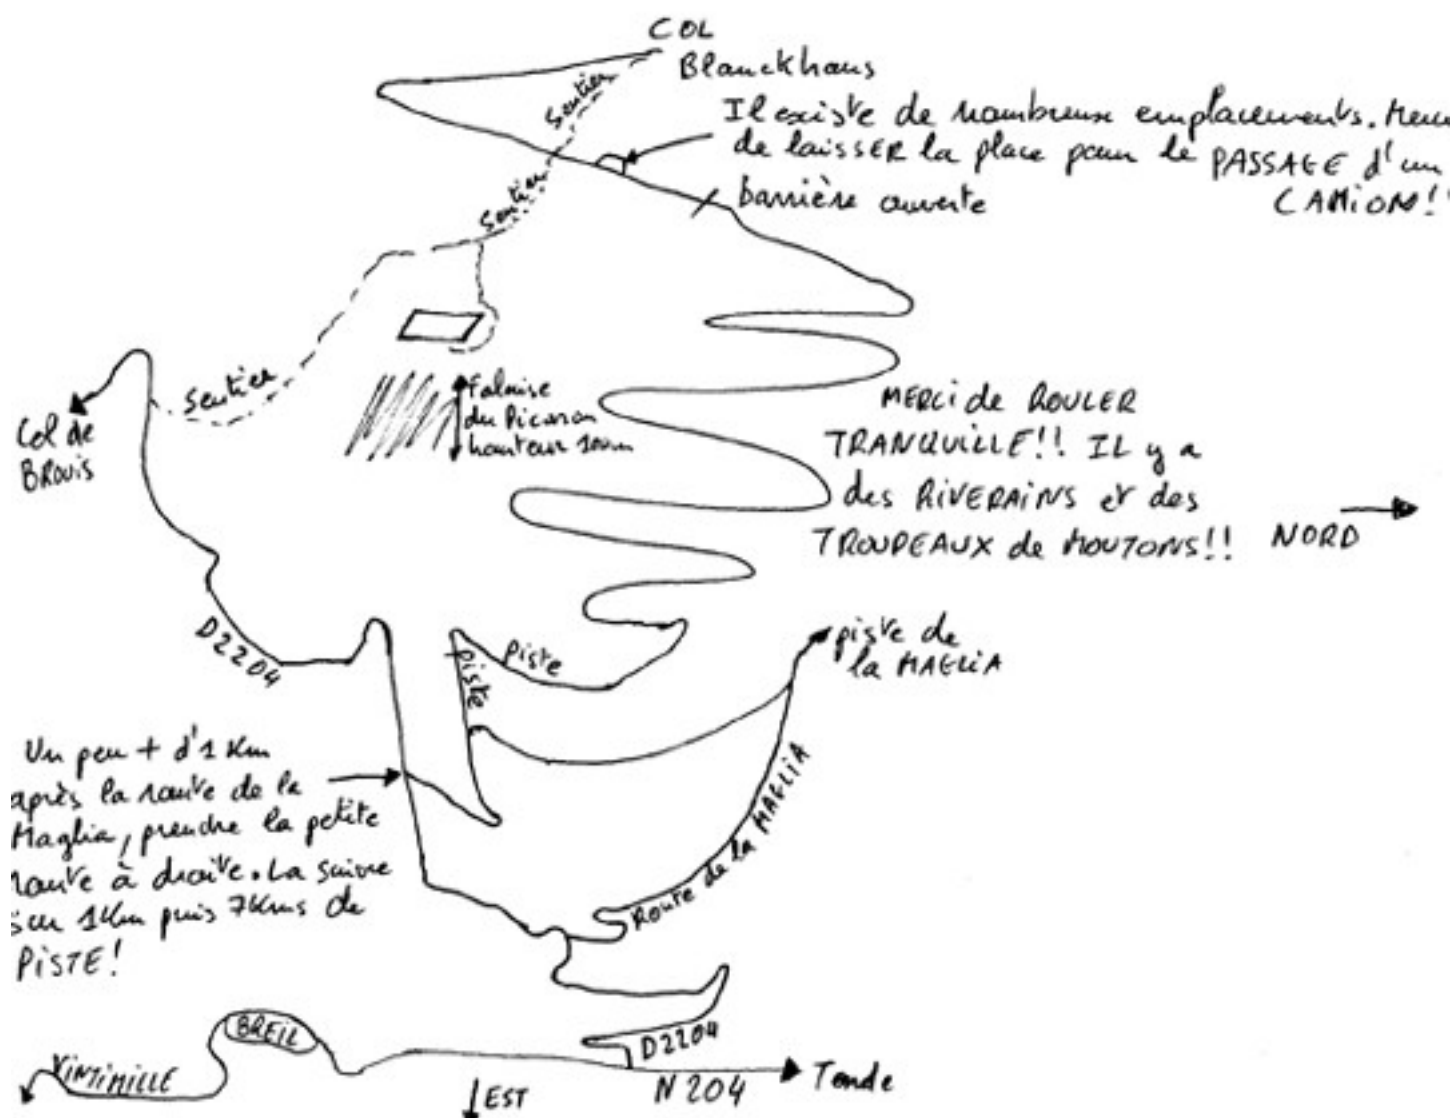 COL
Blanckhaus
Il existe de nombreux emplacements. Merci
de laisSER la place pour le PASSAGE d'un
CAMION!!
barrière ouverte
sentier
sentier
sentier
Falaise
du Picaron
hauteur 100m
Col de
BROUIS
MERCi de ROULER
TRANQUILLE!! IL y a
des RiVERAiNS et des
TROUPEAUX de MOUTONS!!
NORD
D2204
piste
piste
piste de
la MAGLiA
Un peu + d'1 Km
après la route de la
Maglia, prendre la petite
route à droite. La suivre
sur 1Km puis 7Kms de
PiSTE!
Route de la MAGLiA
D2204
BREiL
ViNTiMiLLE
EST
N 204
Tende